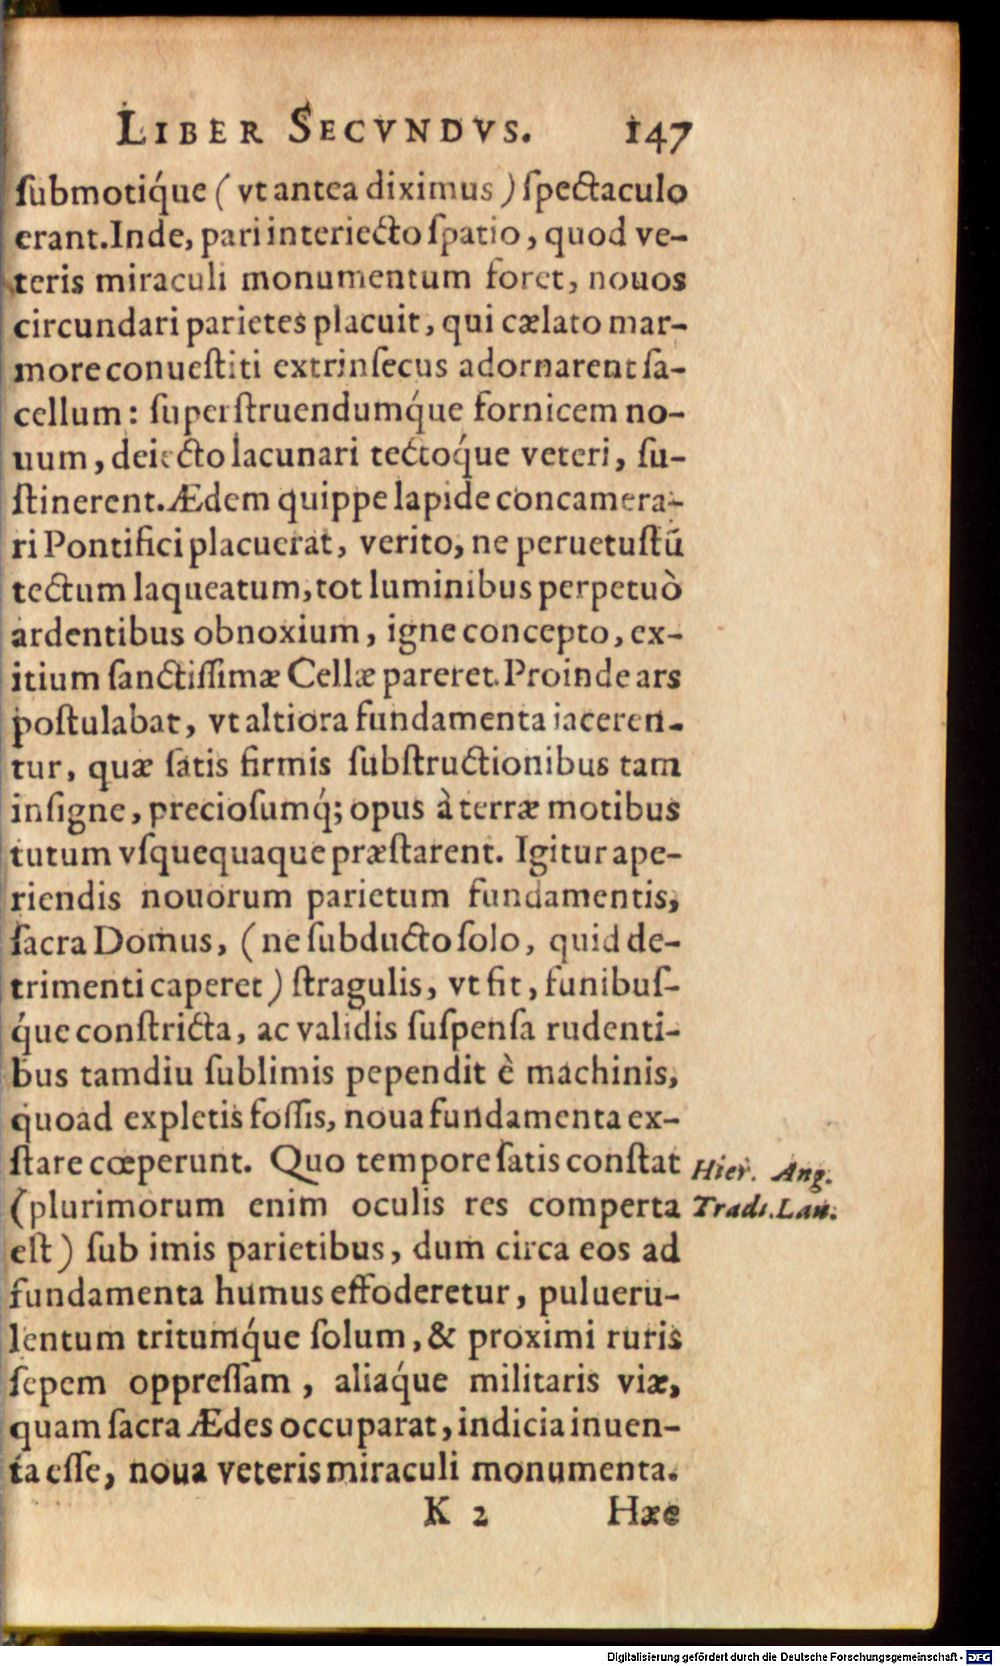 LIBER SECVNDVS. 147
ſubmotiq́ue ( vt antea diximus ) ſpectaculo
erant. Inde, pari interiecto ſpatio, quod ve-
teris miraculi monumentum foret, nouos
circundari parietes placuit, qui cælato mar-
more conueſtiti extrinſecus adornarent ſa-
cellum: ſuperſtruendumq́ue fornicem no-
uum, deiecto lacunari tectoq́ue veteri, ſu-
ſtinerent. Ædem quippe lapide concamera-
ri Pontifici placuerat, verito, ne peruetuſtũ
tectum laqueatum, tot luminibus perpetuò
ardentibus obnoxium, igne concepto, ex-
itium ſanctiſſimæ Cellæ pareret. Proinde ars
poſtulabat, vt altiora fundamenta iaceren-
tur, quæ ſatis firmis ſubſtructionibus tam
inſigne, precioſumq́; opus à terræ motibus
tutum vſquequaque præſtarent. Igitur ape-
riendis nouorum parietum fundamentis,
ſacra Domus, ( ne ſubducto ſolo, quid de-
trimenti caperet ) ſtragulis, vt fit, funibuſ-
q́ue conſtricta, ac validis ſuſpenſa rudenti-
bus tamdiu ſublimis pependit è machinis,
quoad expletis foſſis, noua fundamenta ex-
ſtare cœperunt. Quo tempore ſatis conſtat
Hier. Ang.
(plurimorum enim oculis res comperta
Tradi. Lau.
eſt) ſub imis parietibus, dum circa eos ad
fundamenta humus effoderetur, pulueru-
lentum tritumq́ue ſolum, & proximi ruris
ſepem oppreſſam, aliaq́ue militaris viæ,
quam ſacra Ædes occuparat, indicia inuen-
ta eſſe, noua veteris miraculi monumenta.
K 2 Hæc
Digitalisierung gefördert durch die Deutsche Forschungsgemeinschaft - DFG